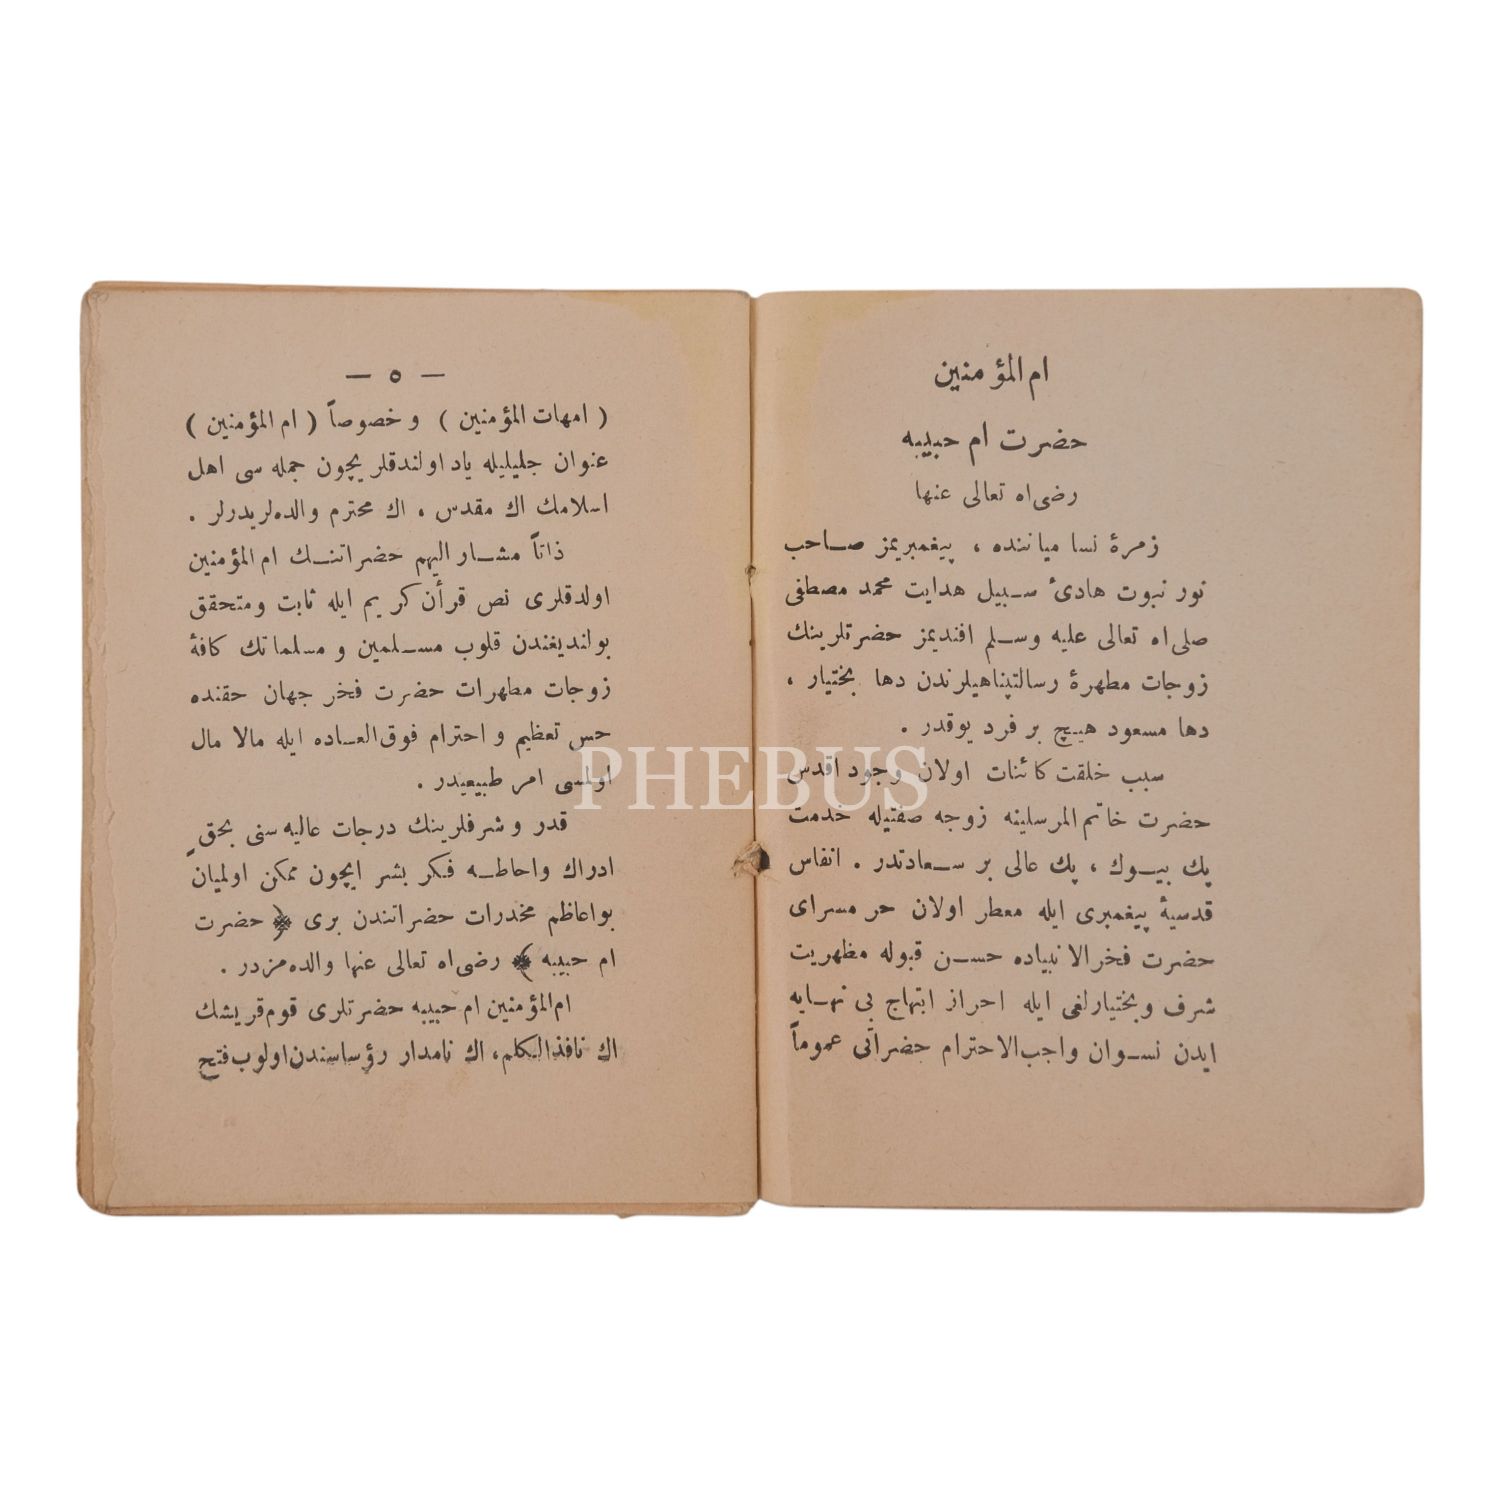 ام المؤمنين
حضرت ام حبيبه
رضى الله تعالى عنها
زمرۀ نسا مياننده ، پيغمبريمز صاحب
نور نبوت هادئ سبيل هدايت محمد مصطفى
صلى الله تعالى عليه وسلم افنديمز حضرتلرينك
زوجات مطهرۀ رسالتپناهيلرندن دها بختيار ،
دها مسعود هيچ بر فرد يوقدر .
سبب خلقت كائنات اولان وجود اقدس
حضرت خاتم المرسلينه زوجه صفتيله خدمت
پك بيوك ، پك عالى بر سعادتدر . انفاس
قدسيۀ پيغمبرى ايله معطر اولان حرمسراى
حضرت فخر الانبياده حسن قبوله مظهريت
شرف وبختيارلغى ايله احراز ابتهاج بى نهايه
ايدن نسوان واجب الاحترام حضراتى عموماً
— ٥ —
( امهات المؤمنين ) وخصوصاً ( ام المؤمنين )
عنوان جليليله ياد اولندقلريچون جمله سى اهل
اسلامك اك مقدس ، اك محترم والده لريدرلر .
ذاتاً مشار اليهم حضراتنك ام المؤمنين
اولدقلرى نص قرأن كريم ايله ثابت ومتحقق
بولنديغندن قلوب مسلمين و مسلماتك كافۀ
زوجات مطهرات حضرت فخر جهان حقنده
حس تعظيم و احترام فوق العاده ايله مالا مال
اولمسى امر طبيعيدر .
قدر و شرفلرينك درجات عاليه سنى بحقٍ
ادراك واحاطه فكر بشر ايچون ممكن اولميان
بو اعاظم مخدرات حضراتندن برى ﴿ حضرت
ام حبيبه ﴾ رضى الله تعالى عنها والده مزدر .
ام المؤمنين ام حبيبه حضرتلرى قوم قريشك
اك نافذ الكلم، اك نامدار رؤساسندن اولوب فتح
PHEBUS